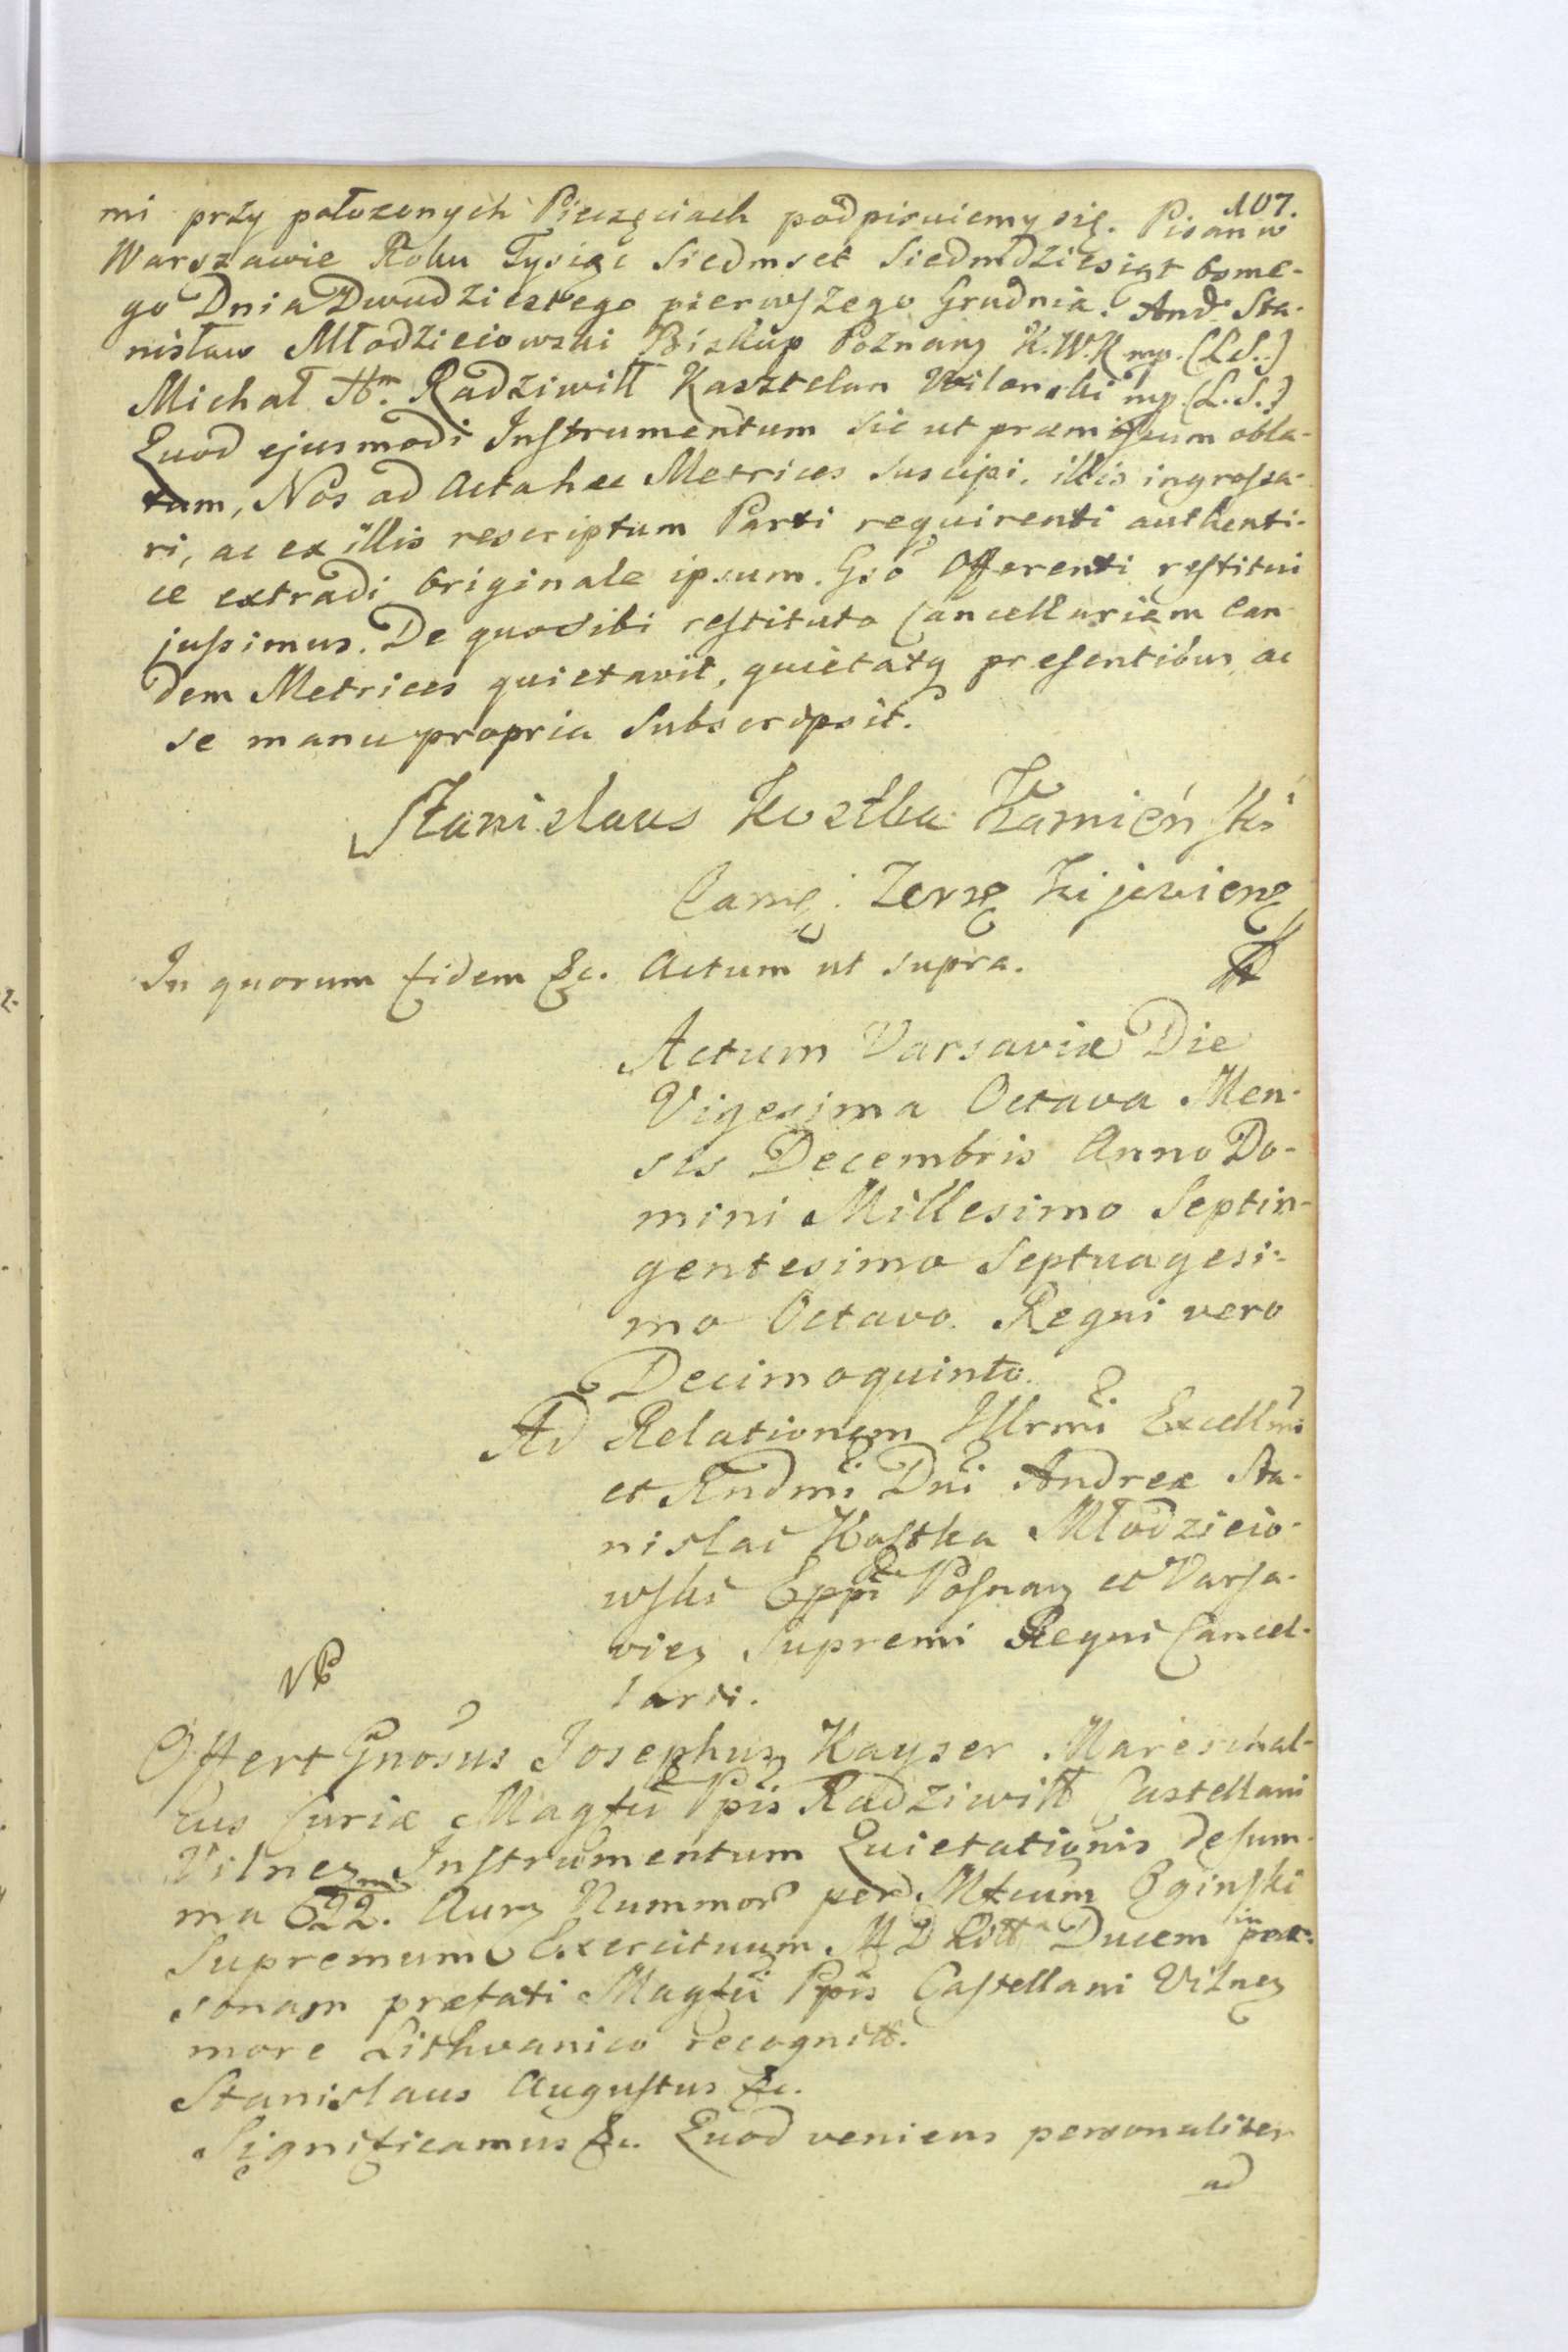 107.
mi przy położonych Pieczęciach podpisuiemy się. Pisan w
Warszawie Roku Tysiąc Siedmset Siedmdziesiąt osme-
go Dnia Dwudziestego pierwszego Grudnia. And. Sta-
nisław Młodzieiowski Biskup Poznanz K.W.K mp. (L.S.)
Michał Hr. Radziwiłł Kasztelan Wilenski mp. (L.S.)
Quod ejusmodi Instrumentum sic ut præmissum obla-
tum, Nos ad Acta hæc Metrices suscipi, illis ingrossa-
ri, ac ex illis rescriptum Parti requirenti authenti-
ce extradi originale ipsum Gso Offerenti restitui
jussimus. De quo sibi restituto Cancellariam ean-
dem Metrices quietavit, quietatq presentibus ac
se manu propria Subscripsit.
Stanislaus Kostka Kamieński
Kijowien
In quorum fidem &c. Actum ut supra.
Actum Varsaviæ Die
Vigesima Octava Men-
sis Decembris Anno Do-
mini Millesimo Septin-
gentesimo Septuagesi-
mo Octavo. Regni vero
Decimoquinto.
Ad Relationem Illrmi Excellmi
et Rndmi Dni Andreæ Sta-
nislai Kostka Młodzieio-
wski Eppi Posnanz et Varsa-
viez Supremi Regni Cancel-
larii.
Offert Gnosus Josephus Kayser Mareschal-
lus Curiæ Magfci Ppis Radziwiłł Castellani
Vilnez Instrumentum Quietationis de sum-
ma 622. Aurz Nummor per Mfcum Oginski
Supremum Exercituum M D Litt Ducem in per-
sonam præfati Magfci Ppis Castellani Vilnez
more Lithvanico recognitt.
Stanislaus Augustus &c.
Significamus &c. Quod veniens personaliter
ad